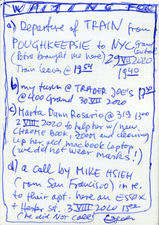 WAITING FOR
a) Departure of TRAIN from
POUGHKEEPSIE to NYC Grand Central
(bird brought me here) 29 VII 2020
Train leaves @ 1954 1940
b) my turn @ TRADER JOE'S 1730
@ 400 Grand 30 VII 2020
c) Marta Dann Rosario @ 319 1300
2 VIII 2020 to help for w/ new
CHROME BOOK, ZOOM and cleaning
up her old macbook laptop,
(we did not wear masks!)
d) a call by MIKE HSIEH
(from San Francisco) in re.
to their apt. here on ESSEX
+ Hester St. 3 VIII 2020
(he did NOT call!)